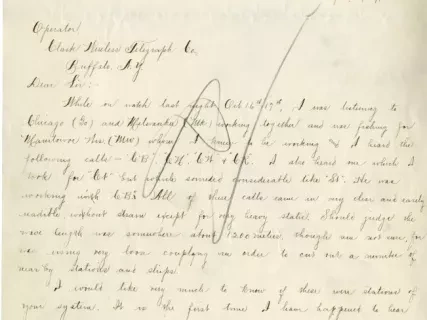 Operator
Clark Wireless Telegraph Co.
Buffalo, N.Y.
Dear Sir:-
While on watch last night Oct 16th 17th, I was listening to
Chicago (Go) and Milwaukee (Mk) working together and was feeling for
Manitowoc Wis. (Mw) whom I knew to be working & I heard the
following calls -
I also heard one which I
took for "Ct" but sounded considerable like "St". He was
working with All of these calls came in very clear and easily
readable without strain except for very heavy static. Should judge the
wave length was somewhere about 1200 meters, though am not sure, for
was using very loose coupling in order to cut out a number of
near by stations and ships.
I would like very much to know if these were stations of
your system. It is the first time I have happened to hear